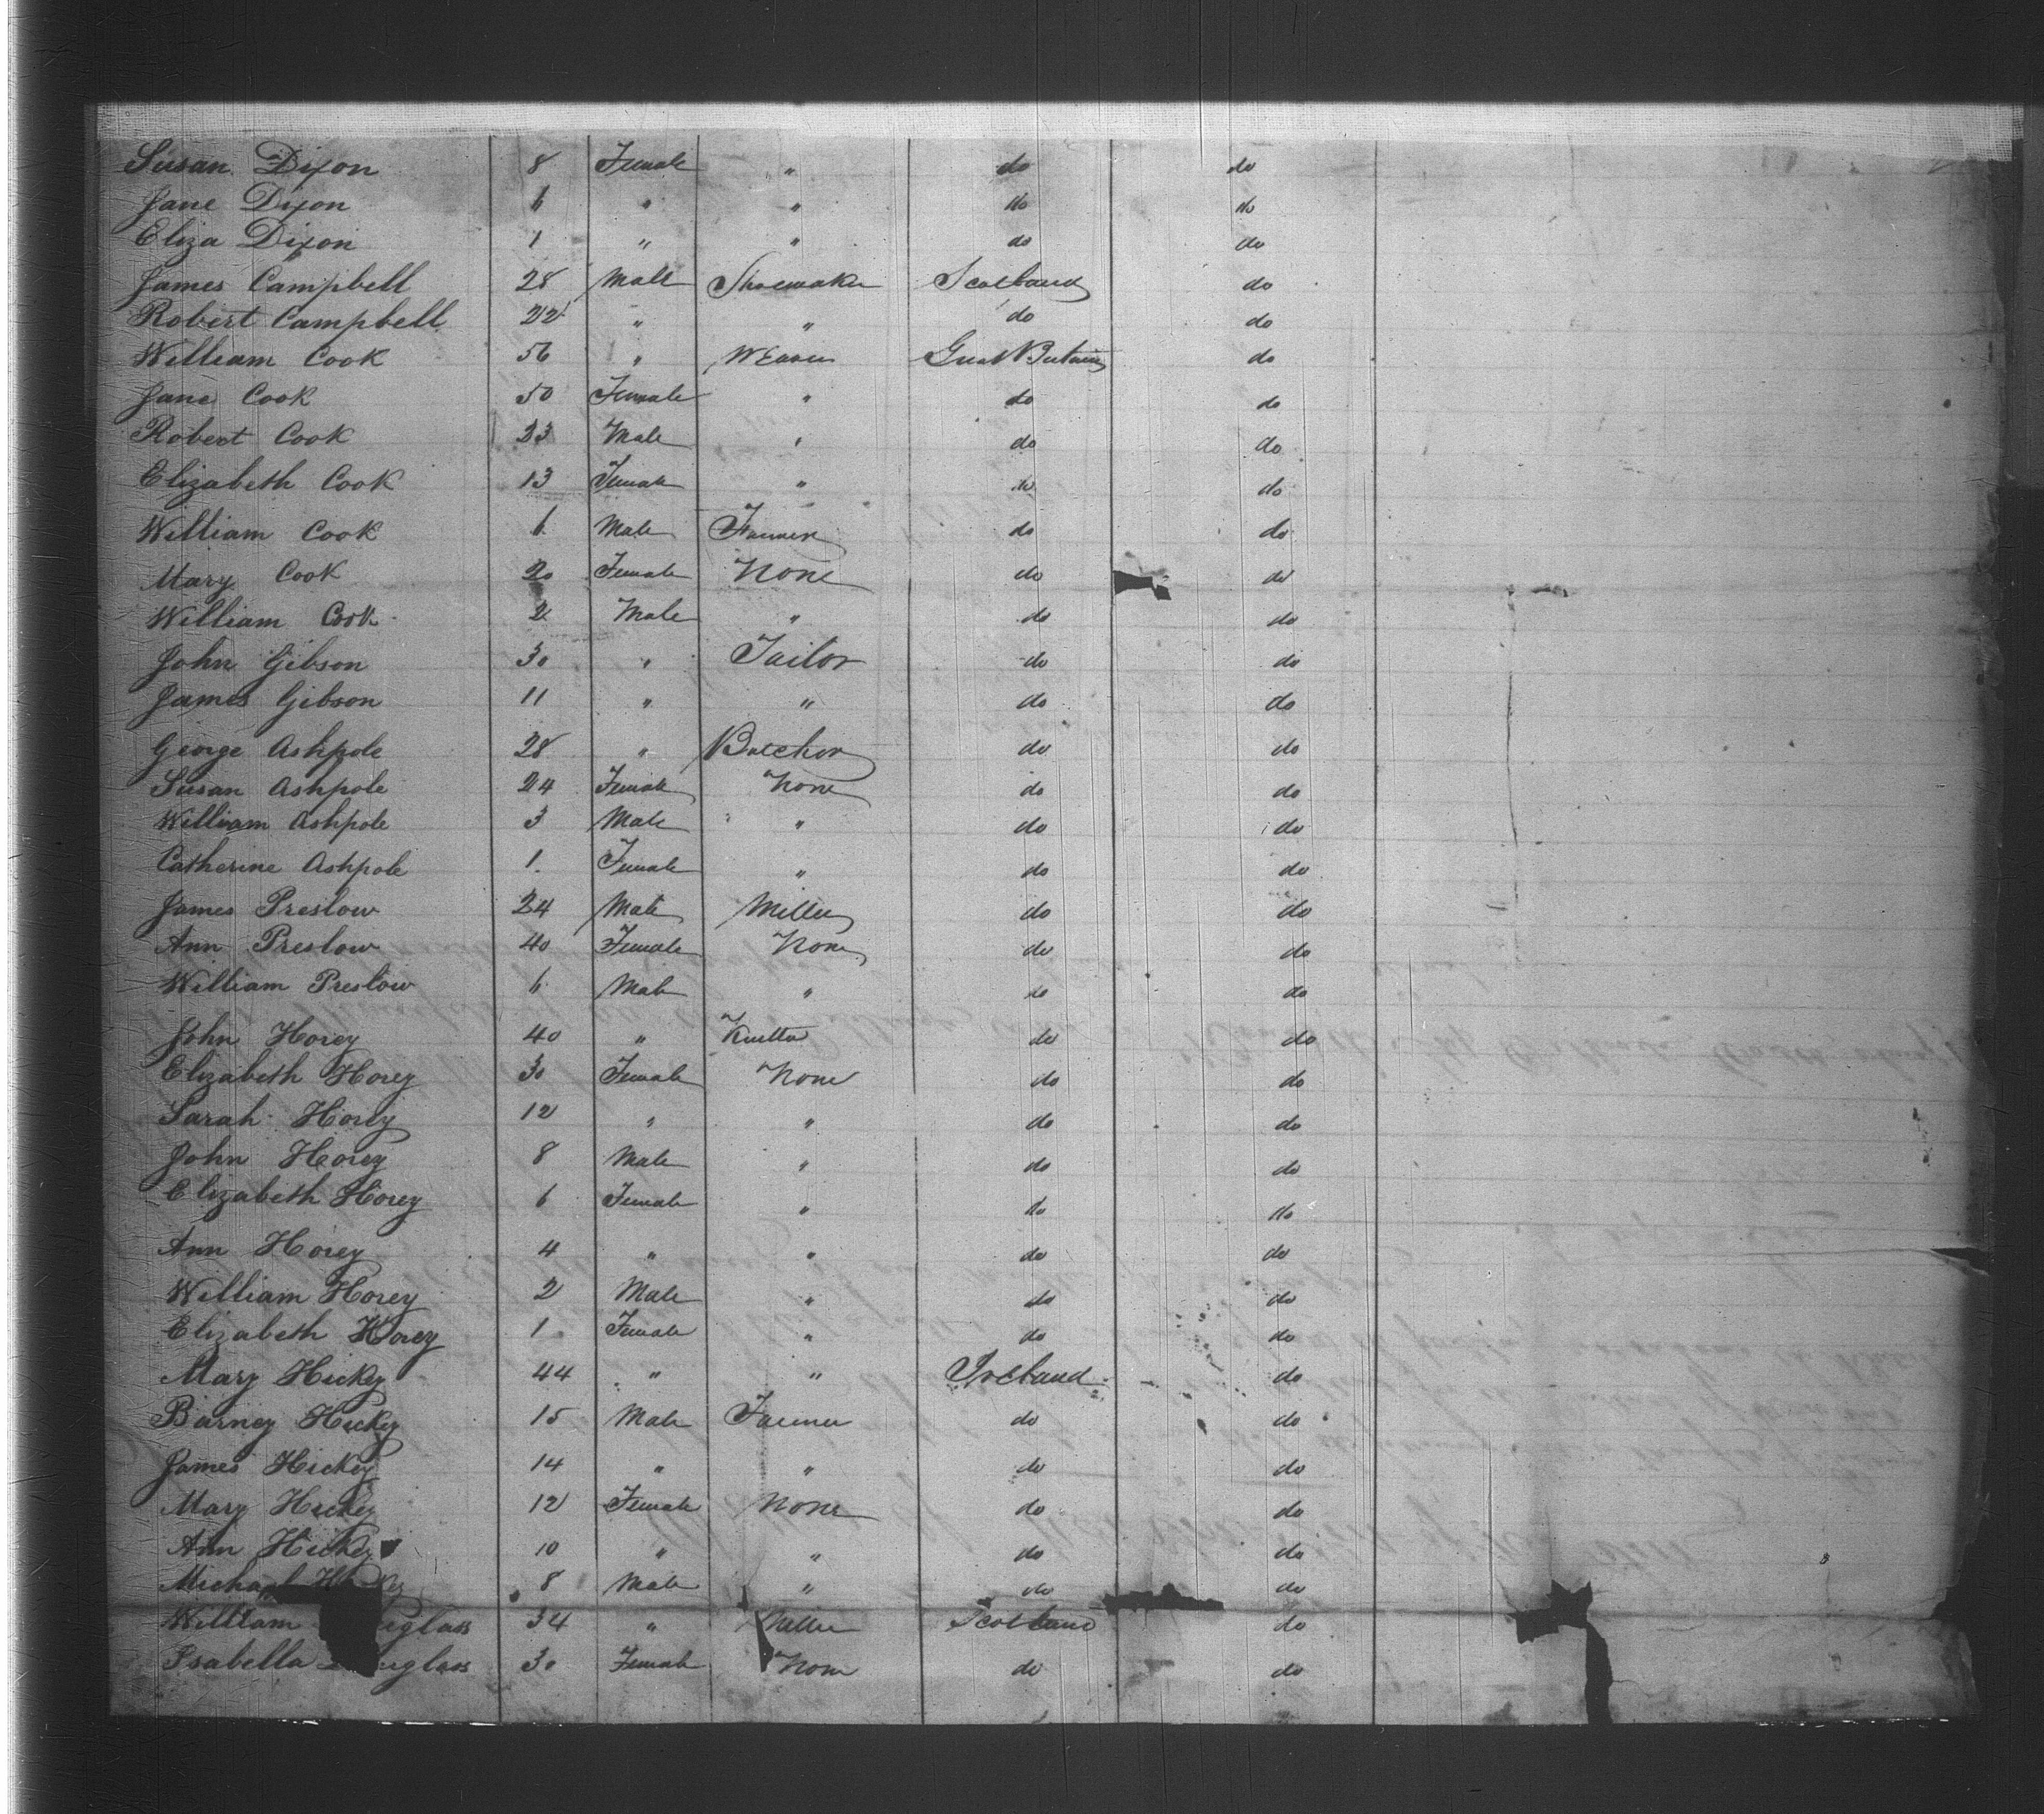 Susan Dixon 8 Female " do do
Jane Dixon 6 " " do do
Eliza Dixon 1 " " do do
James Campbell 28 Male Shoemaker Scotland do
Robert Campbell 22 " " do do
William Cook 56 " Weaver Great Britain do
Jane Cook 50 Female " do do
Robert Cook 23 Male " do do
Elizabeth Cook 13 Female " do do
William Cook 6 Male Farmer do do
Mary Cook 20 Female None do do
William Cook 2 Male " do do
John Gibson 30 " Tailor do do
James Gibson 11 " " do do
George Ashpole 28 " Butcher do do
Susan Ashpole 24 Female None do do
William Ashpole 3 Male " do do
Catherine Ashpole 1 Female " do do
James Preslow 24 Male Miller do do
Ann Preslow 40 Female None do do
William Preslow 6 Male " do do
John Horey 40 " do do
Elizabeth Horey 30 Female None do do
Sarah Horey 12 " " do do
John Horey 8 Male " do do
Elizabeth Horey 6 Female " do do
Ann Horey 4 " " do do
William Horey 2 Male " do do
Elizabeth Horey 1 Female " do do
Mary Hickey 44 " " Ireland do
Barney Hickey 15 Male Farmer do do
James Hickey 14 " " do do
Mary Hickey 12 Female None do do
Ann Hickey 10 " " do do
Michael 8 Male " do do
William 34 " Miller Scotland do
Isabella 30 Female None do do